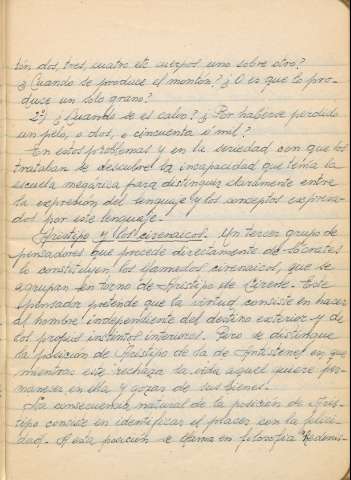 tón dos, tres, cuatro etc cuerpos uno sobre otro?
¿Cuando se produce el montón? ¿O es que lo pro-
duce un solo grano?
2º) ¿Cuando se es calvo? ¿Por haberse perdido
un pelo, o dos, o cincuenta o mil?
En estos problemas y en la seriedad con que los
trataban se descubre la incapacidad que tenía la
escuela megárica para distinguir claramente entre
la expresión del lenguaje y los conceptos expresa-
dos por este lenguaje.
Aristipo y los cirenaicos. Un tercer grupo de
pensadores que precede directamente de Sócrates
lo constituyen los llamados cirenaicos, que se
agrupan en torno de Aristipo de Cirene. Este
pensador pretende que la virtud consiste en hacer
al hombre independiente del destino exterior y de
los propios instintos interiores. Pero se distingue
la posición de Aristipo de la de Antístenes en que
mientras este rechaza la vida aquel quiere per-
manecer en ella y gozar de sus bienes.
La consecuencia natural de la posición de Aris-
tipo consiste en identificar el placer con la felici-
dad. A esta posición se llama en filosofía "Hedonis-